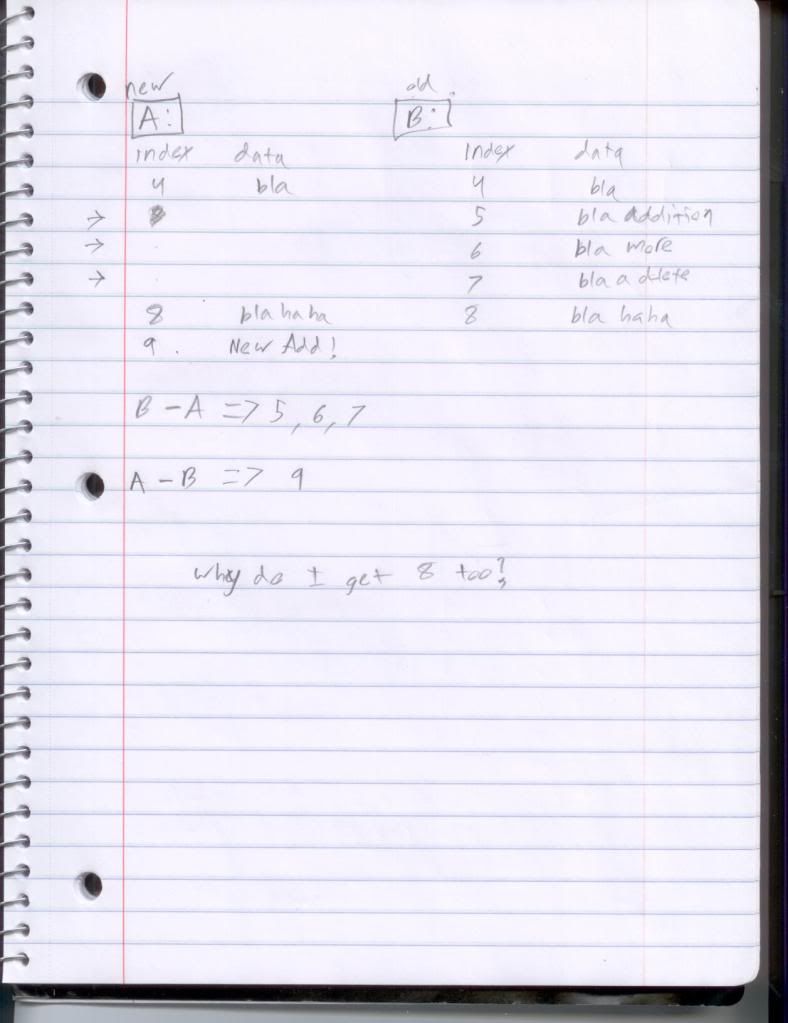 new old
A: B:
index data Index data
4 bla 4 bla
→ 5 bla addition
→ 6 bla more
→ 7 bla a delete
8 bla haha 8 bla haha
9 New Add!
B - A => 5, 6, 7
A - B => 9
why do I get 8 too?